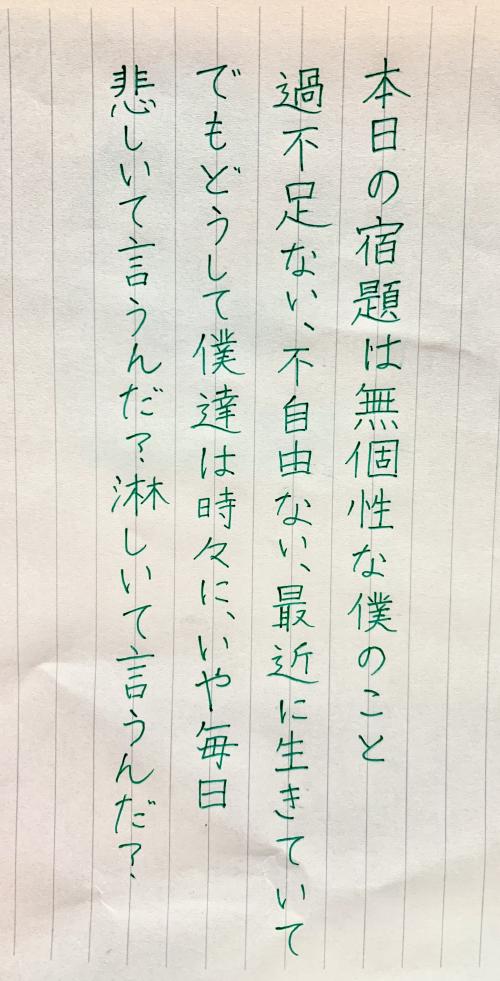 本日の宿題は無個性な僕のこと
過不足ない、不自由ない、最近に生きていて
でもどうして僕達は時々に、いや毎日
悲しいて言うんだ?淋しいて言うんだ?